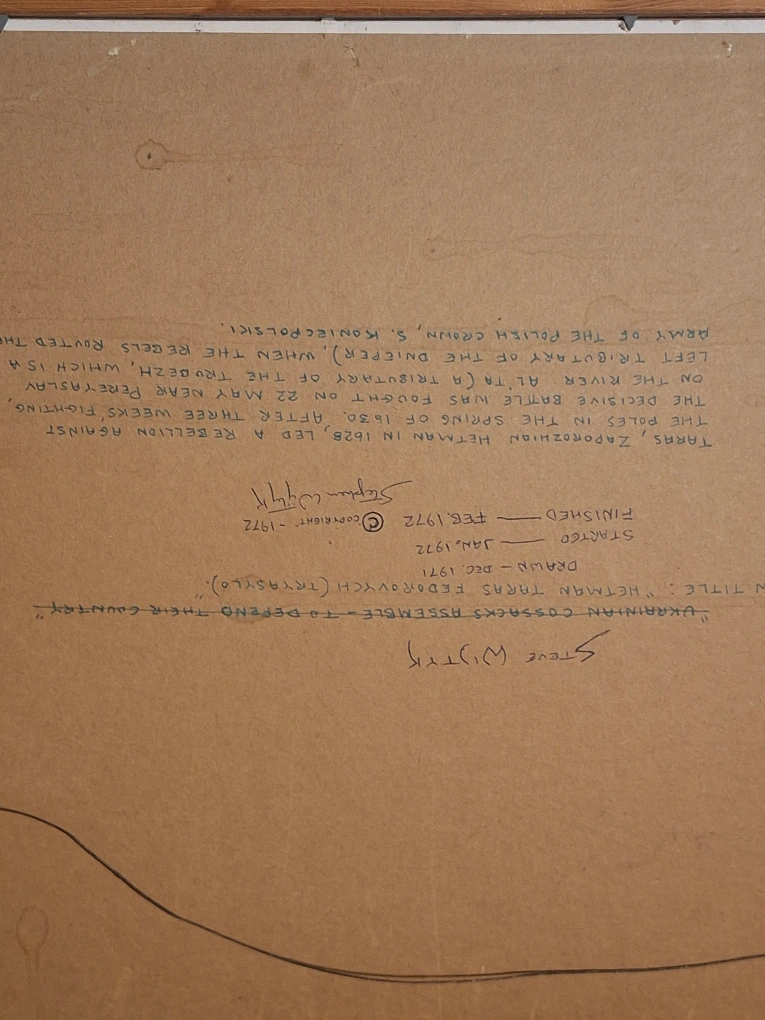 STEVE W)TYK
"UKRAINIAN COSSACKS ASSEMBLE - TO DEFEND THEIR COUNTRY"
N TITLE: "HETMAN TARAS FEDOROVYCH (TRYASYLO)."
DRAWN - DEC. 1971
STARTED — JAN. 1972
FINISHED — FEB. 1972 © COPYRIGHT - 1972
Stephen
TARAS, ZAPOROZHIAN HETMAN IN 1628, LED A REBELLION AGAINST
THE POLES IN THE SPRING OF 1630. AFTER THREE WEEKS' FIGHTING,
THE DECISIVE BATTLE WAS FOUGHT ON 22 MAY NEAR PEREYASLAV
ON THE RIVER AL'TA (A TRIBUTARY OF THE TRUBEZH, WHICH IS A
LEFT TRIBUTARY OF THE DNIEPER), WHEN THE REBELS ROUTED THE
ARMY OF THE POLISH CROWN, S. KONIECPOLSKI.